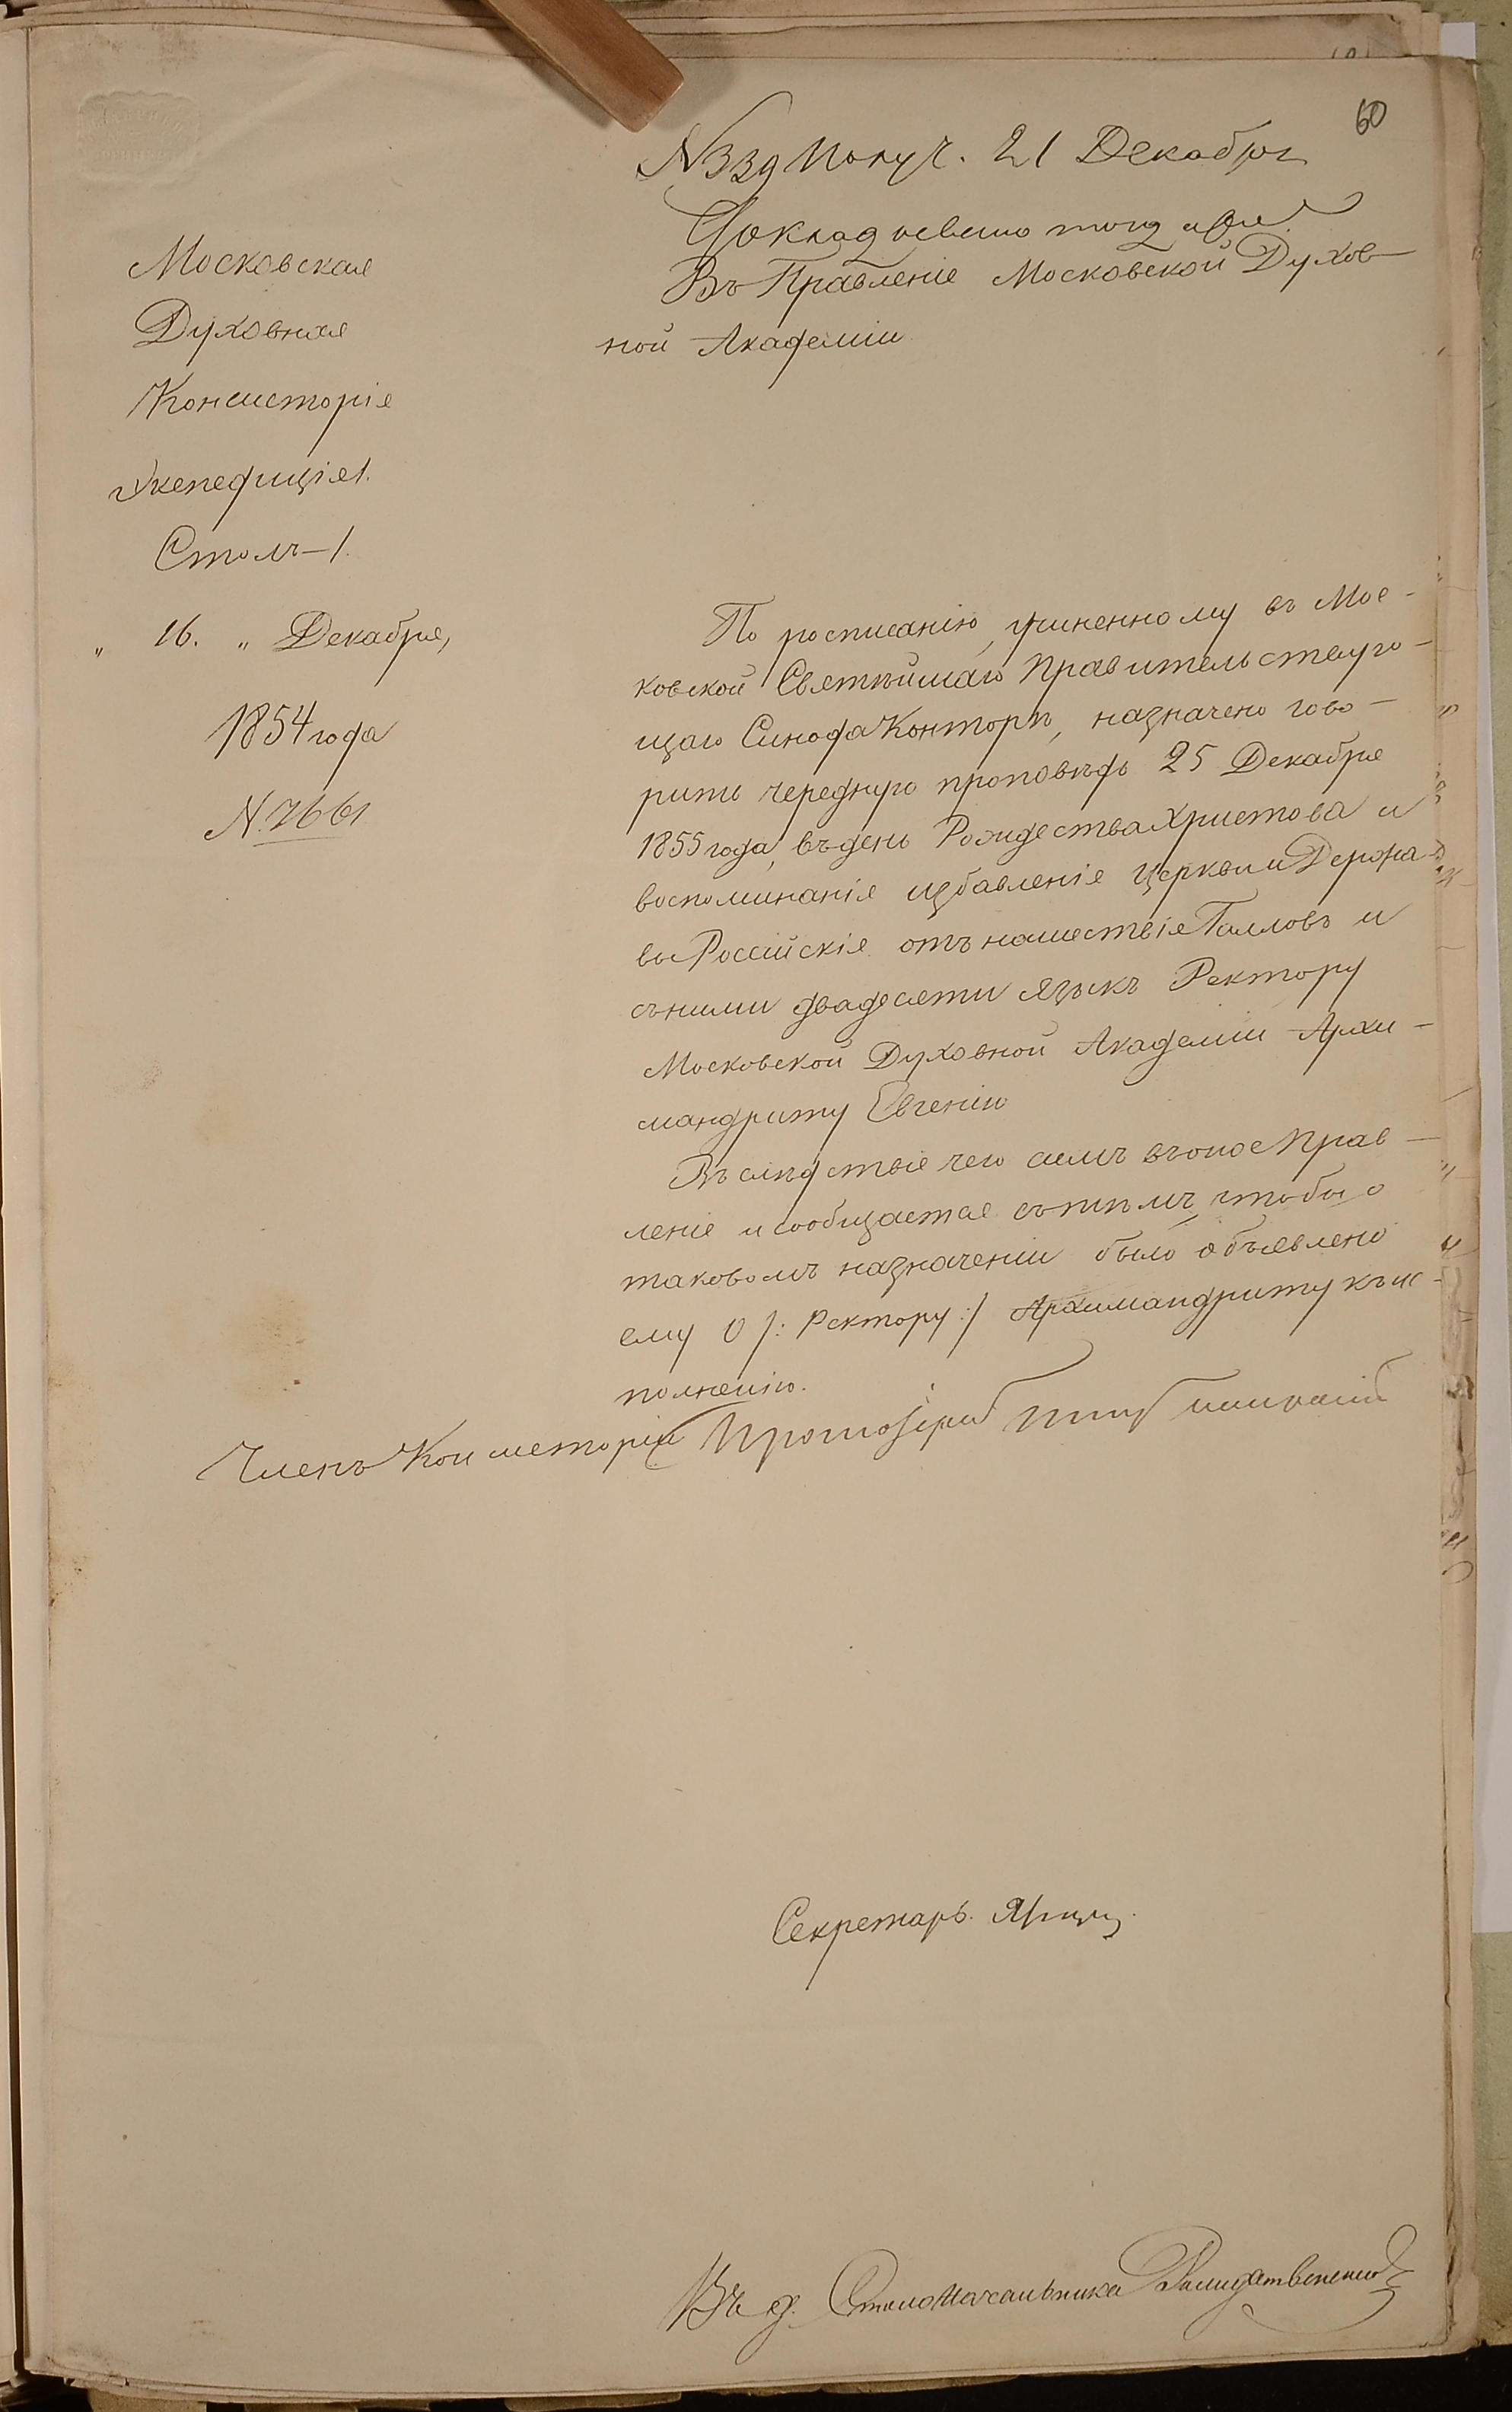 60
N 339 Получ. 21 Декабря
Доклад
Въ Правленіе Московской Духов-
ной Академіи
Московская
Духовная
Консисторія
Экспедиція 1.
Столъ - 1.
" 16. " Декабря,
1854 года
N. 7661
По росписанію, учиненному въ Мос-
ковской Святѣйшаго Правительствую-
щаго Синода Конторѣ, назначено гово-
рить чередную проповѣдь 25 Декабря
1855 года, въ день Рождества Христова и
воспоминанія избавленія церкви и Держа-
вы Россійскія отъ нашествія Галловъ и
съ ними двадесяти языкъ Ректору
Московской Духовной Академіи Архи-
мандриту Евгенію
Въ слѣдствіе чего симъ въ оное Прав-
леніе и сообщается съ тѣмъ, чтобы о
таковомъ назначеніи было объявлено
ему О /: Ректору :/ Архимандриту къ ис-
полненію.
Членъ Консисторіи Протоіерей
Секретарь.
Въ д. Столоначальника Рождественскій